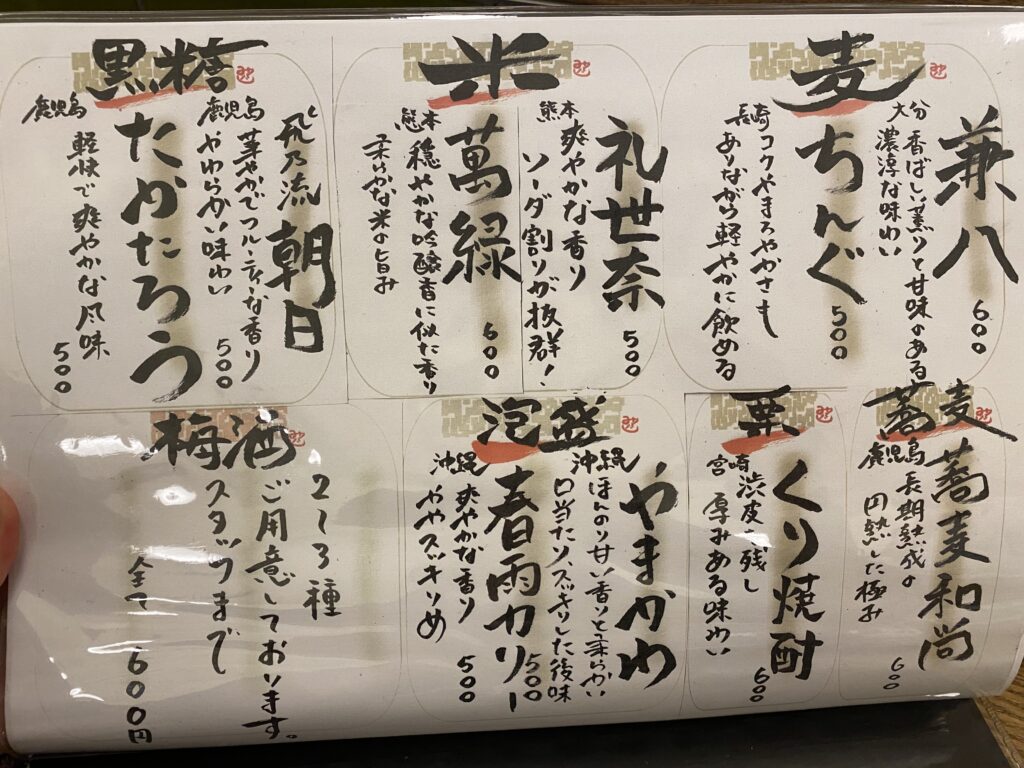 麦
兼八
大分 香ばしい薫りと甘味のある
濃淳な味わい
600
ちんぐ
長崎 コクやまろやかさも
ありながら軽やかに飲める
500
米
礼世奈
熊本 爽やかな香り
ソーダ割りが抜群!
500
萬緑
熊本 穏やかな吟醸香に似た香り
柔らかな米の旨み
600
黒糖
飛乃流 朝日
鹿児島 華やかでフルーティな香り
やわらかい味わい
500
たかたろう
鹿児島 軽快で爽やかな風味
500
蕎麦
蕎麦和尚
鹿児島 長期熟成の
円熟した極み
600
栗
くり焼酎
宮崎 渋皮残し
厚みある味わい
600
泡盛
やまかわ
沖縄 ほんのり甘い香りと柔らかい
口当たり、スッキリした後味
500
春雨カリー
沖縄 爽やかな香り
ややスッキりめ
500
梅酒
2〜3種
ご用意しております。
スタッフまで
全て600円